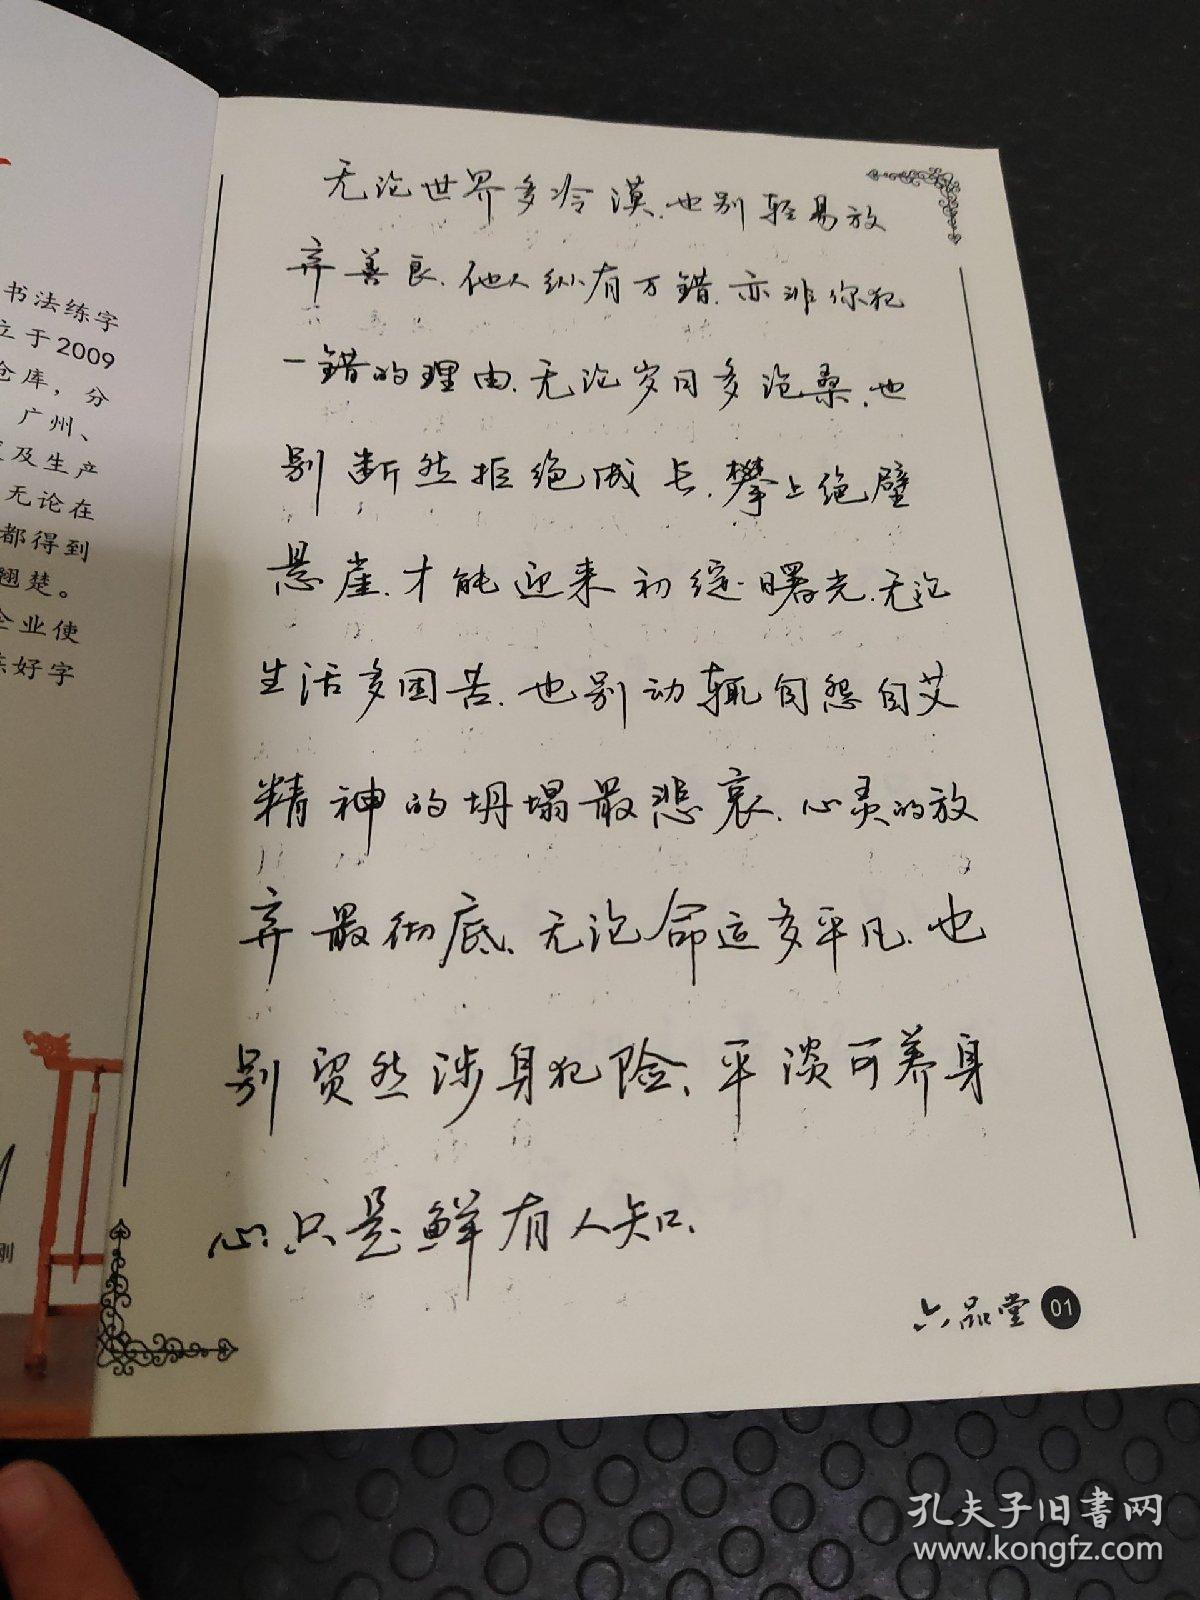 书法练字
立于2009
仓库，分
广州、
及生产
无论在
都得到
翘楚。
企业使
练好字
刚
无论世界多冷漠.也别轻易放
弃善良.他人纵有万错.亦非你犯
一错的理由.无论岁月多沧桑.也
别断然拒绝成长.攀上绝壁
悬崖.才能迎来初绽曙光.无论
生活多困苦.也别动辄自怨自艾
精神的坍塌最悲哀.心灵的放
弃最彻底、无论命运多平凡、也
别贸然涉身犯险、平淡可养身
心.只是鲜有人知.
六品堂 01
孔夫子旧书网
www.kongfz.com